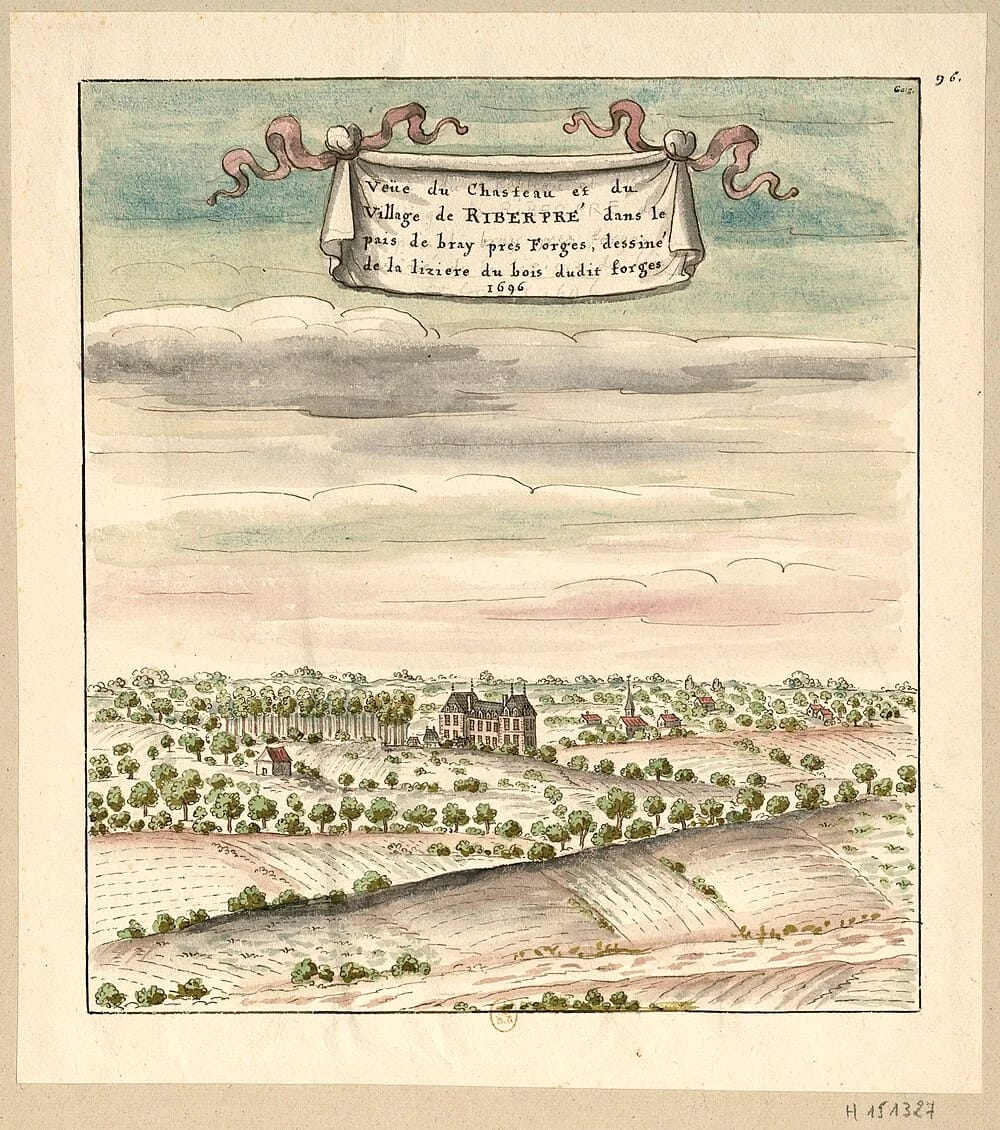 96.
Gaig.
Veüe du Chasteau et du
Village de RIBERPRÉ dans le
pais de bray pres Forges, dessiné
de la liziere du bois dudit forges
1696
H 151327